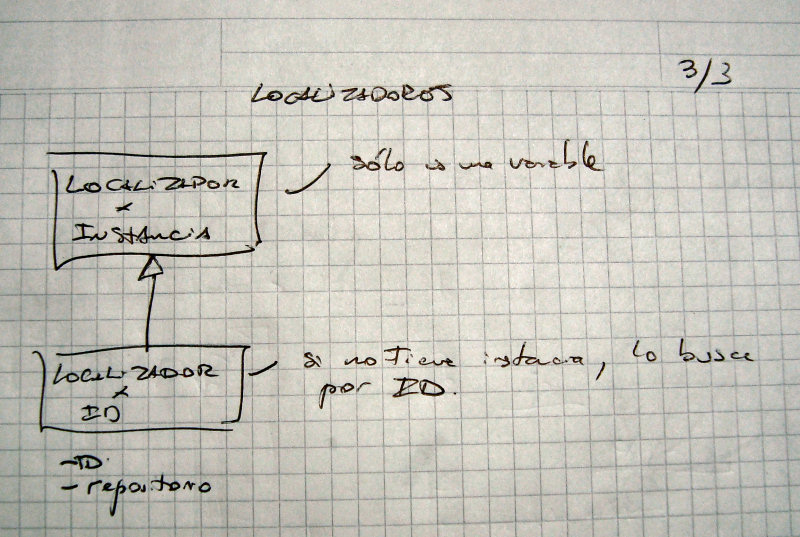 3/3
LOCALIZADORES
LOCALIZADOR
x
INSTANCIA
sólo es una variable
LOCALIZADOR
x
ID
si no tiene instancia, lo busca
por ID.
- ID
- repositorio